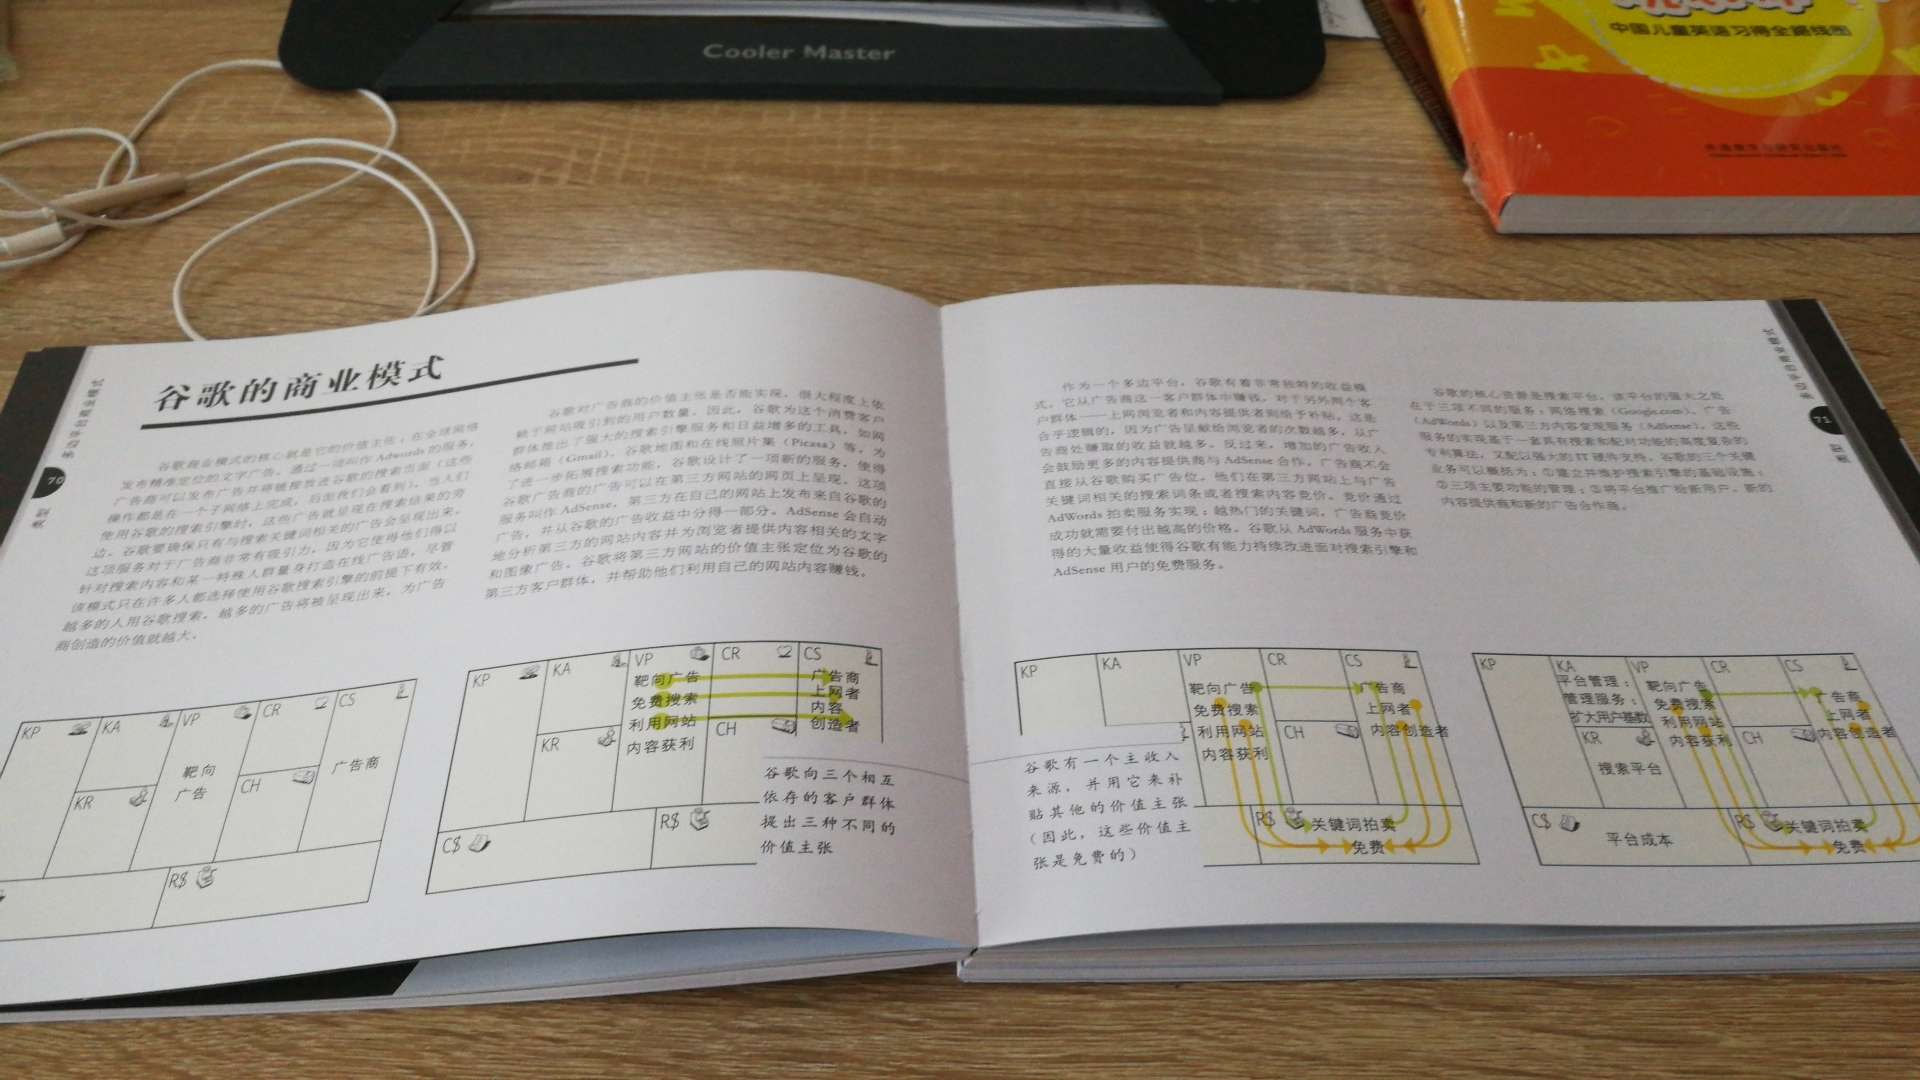 Cooler Master
中国儿童英语习得全路线图
谷歌的商业模式
70
谷歌商业模式的核心就是它的价值主张：在全球网络
发布精准定位的文字广告。通过一项叫作Adwords的服务，
广告商可以发布广告并将链接放进谷歌的搜索页面（这些
操作都是在一个子网络上完成，后面我们会看到）。当人们
使用谷歌的搜索引擎时，这些广告就呈现在搜索结果的旁
边。谷歌要确保只有与搜索关键词相关的广告会呈现出来。
这项服务对于广告商非常有吸引力，因为它使得他们得以
针对搜索内容和某一特殊人群量身打造在线广告语，尽管
该模式只在许多人都选择使用谷歌搜索引擎的前提下有效。
越多的人用谷歌搜索，越多的广告将被呈现出来，为广告
商创造的价值就越大。
谷歌对广告商的价值主张是否能实现，很大程度上依
赖于网站吸引到的用户数量。因此，谷歌为这个消费客户
群体推出了强大的搜索引擎服务和日益增多的工具，如网
络邮箱（Gmail）、谷歌地图和在线照片集（Picasa）等。为
了进一步拓展搜索功能，谷歌设计了一项新的服务，使得
谷歌广告商的广告可以在第三方网站的网页上呈现。这项
服务叫作AdSense，第三方在自己的网站上发布来自谷歌的
广告，并从谷歌的广告收益中分得一部分。AdSense会自动
地分析第三方的网站内容并为浏览者提供内容相关的文字
和图像广告。谷歌将第三方网站的价值主张定位为谷歌的
第三方客户群体，并帮助他们利用自己的网站内容赚钱。
KP
KA
VP
CR
CS
靶向
广告
广告商
KR
CH
R$
KP
KA
VP
CR
CS
靶向广告
免费搜索
利用网站
内容获利
广告商
上网者
内容
创造者
KR
CH
C$
R$
谷歌向三个相互
依存的客户群体
提出三种不同的
价值主张
71
作为一个多边平台，谷歌有着非常独特的收益模
式。它从广告商这一客户群体中赚钱，对于另外两个客
户群体——上网浏览者和内容提供者则给予补贴。这是
合乎逻辑的，因为广告呈献给浏览者的次数越多，从广
告商处赚取的收益就越多。反过来，增加的广告收入
会鼓励更多的内容提供商与AdSense合作。广告商不会
直接从谷歌购买广告位，他们在第三方网站上与广告
关键词相关的搜索词条或者搜索内容竞价。竞价通过
AdWords拍卖服务实现：越热门的关键词，广告商竞价
成功就需要付出越高的价格。谷歌从AdWords服务中获
得的大量收益使得谷歌有能力持续改进面对搜索引擎和
AdSense用户的免费服务。
谷歌的核心资源是搜索平台，该平台的强大之处
在于三项不同的服务：网络搜索（Google.com）、广告
（AdWords）以及第三方内容变现服务（AdSense）。这些
服务的实现基于一套具有搜索和配对功能的高度复杂的
专利算法，又配以强大的IT硬件支持。谷歌的三个关键
业务可以概括为：①建立并维护搜索引擎的基础设施；
②三项主要功能的管理；③将平台推广给新用户、新的
内容提供商和新的广告合作商。
KP
KA
VP
CR
CS
靶向广告
免费搜索
利用网站
内容获利
广告商
上网者
内容创造者
CH
R$
关键词拍卖
免费
谷歌有一个主收入
来源，并用它来补
贴其他的价值主张
（因此，这些价值主
张是免费的）
KP
KA
VP
CR
CS
平台管理；
管理服务；
扩大用户基数
靶向广告
免费搜索
利用网站
内容获利
广告商
上网者
内容创造者
KR
搜索平台
CH
C$
平台成本
R$
关键词拍卖
免费